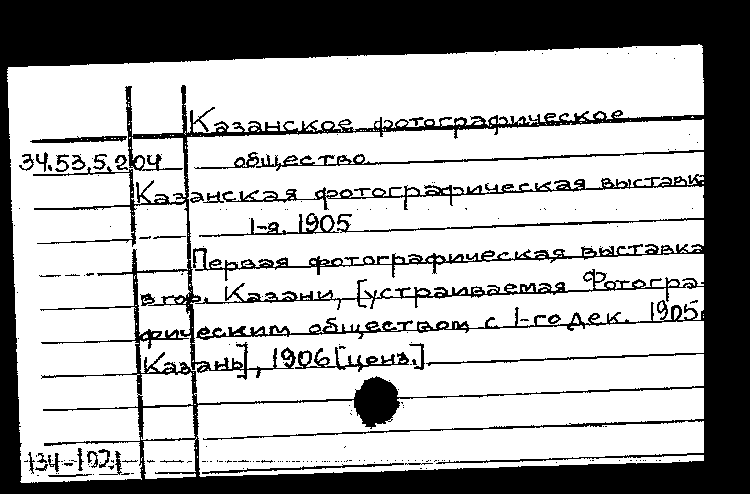 Казанское фотографическое
34.53.5.204 общество.
Казанская фотографическая выставка
1-я. 1905
Первая фотографическая выставка
в гор. Казани, [устраиваемая Фотогра-
фическим обществом с 1-го дек. 1905
Казань], 1906 [ценз.].
134-102.1